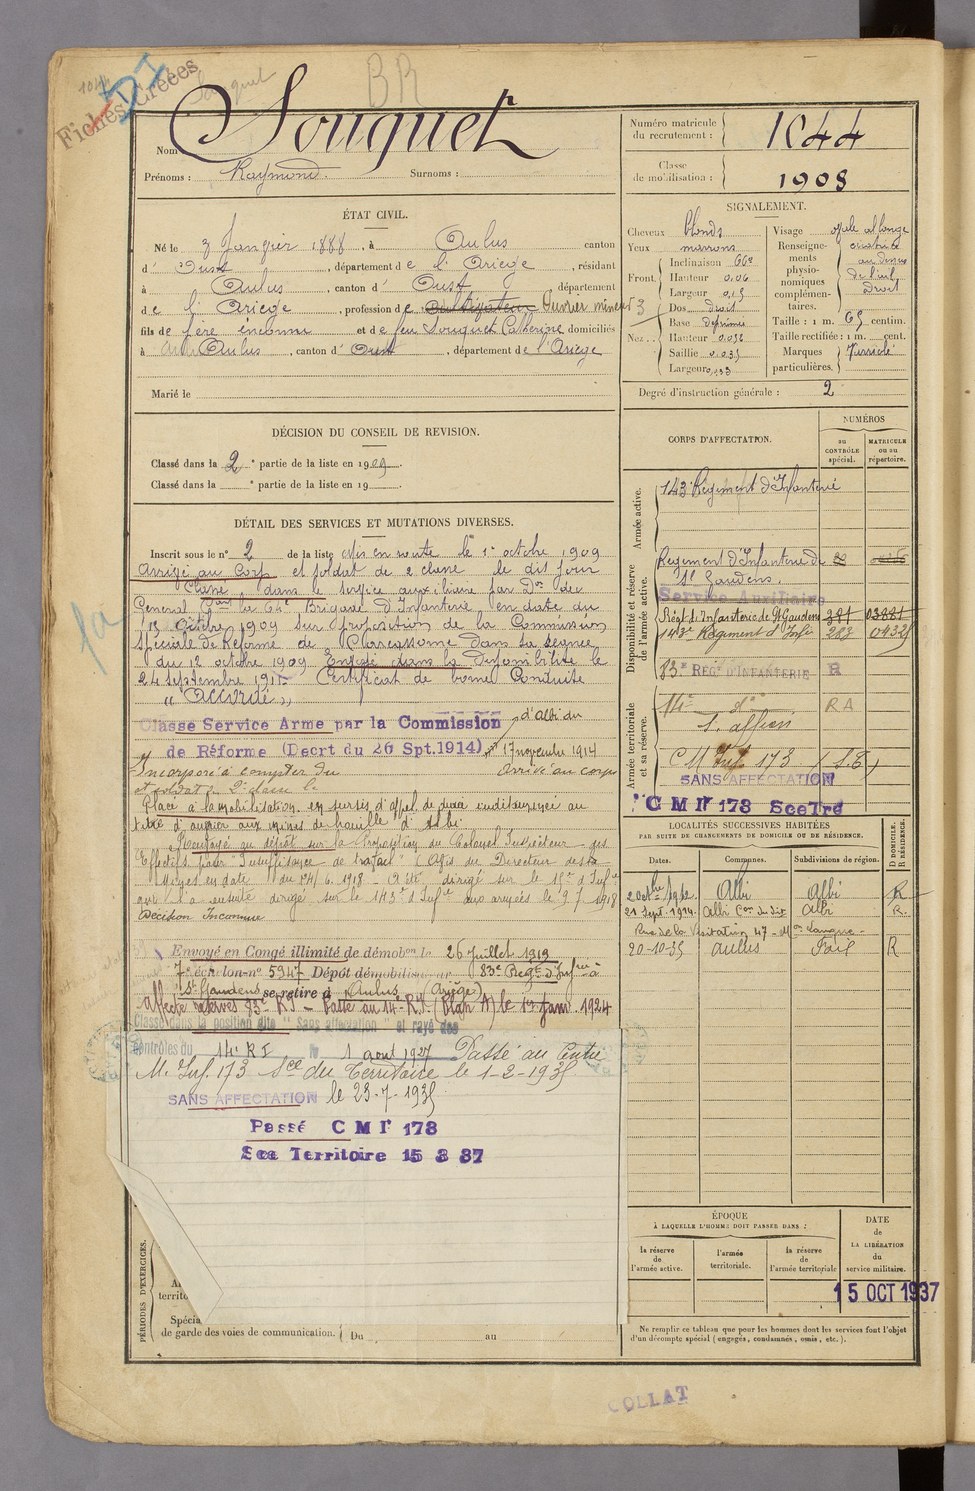 1044
Fiches Créées
Souquet
BR
Nom Souquet
Prénoms : Raymond. Surnoms :
Numéro matricule du recrutement : 1044
Classe de mobilisation : 1908
ÉTAT CIVIL.
Né le 3 Janvier 1888, à Aulus canton
d' Oust, département de l'Ariège, résidant
à Aulus, canton d' Oust, département
de l'Ariège, profession de Cultivateur Ouvrier mineur
fils de père inconnu et de feu Souquet Catherine, domiciliés
à Aulus, canton d' Oust, département de l'Ariège
Marié le
SIGNALEMENT.
Cheveux blonds
Yeux marrons
Front. Inclinaison
Hauteur 0,06
Largeur 0,15
Nez. Dos droit
Base déprimée
Hauteur 0,056
Saillie 0,035
Largeur 0,033
Visage ovale allongé
Renseignements physionomiques complémentaires. cicatrice au dessus de l'œil Droit
Taille : 1 m. 65 centim.
Taille rectifiée : 1 m. cent.
Marques particulières.
Degré d'instruction générale : 2
DÉCISION DU CONSEIL DE REVISION.
Classé dans la 2e partie de la liste en 1909.
Classé dans la e partie de la liste en 19 .
DÉTAIL DES SERVICES ET MUTATIONS DIVERSES.
Inscrit sous le n° 2 de la liste Mis en route le 1er octobre 1909
Arrivé au Corps et soldat de 2e classe le dit jour
Classé dans le service auxiliaire par Don du
Général Dant la 64e Brigade d'Infanterie en date du
12 Octobre 1909 sur proposition de la Commission
Spéciale de Réforme de Carcassonne dans sa séance
du 12 octobre 1909 Envoyé dans la disponibilité le
24 septembre 191 Certificat de bonne Conduite
"Accordé"
Classé Service Armé par la Commission d'Albi du
de Réforme (Decrt du 26 Spt.1914), 17 novembre 1914
Incorporé à compter du arrivé au corps
et soldat de 2e classe le
Placé à la mobilisation en sursis d'appel de durée indéterminée au
titre d'ouvrier aux mines de houille d'Albi.
Renvoyé au dépôt sur la proposition du Colonel Inspecteur des
Effectifs pour "Insuffisance de travail" (Avis du Directeur des
Mines en date du 14/6.1918 - a été dirigé sur le 15e d'Infie
qui l'a ensuite dirigé sur le 143e d'Infie aux armées le 9 7 1918
Décision Inconnue
Envoyé en Congé illimité de démobon le 26 Juillet 1919
7e échelon-n° 5947 Dépôt démobilisateur 83e Regt d'Infie à
St Gaudens se retire à Aulus (Ariège)
Affecté réserves 83e RI - Passé au 14e R.I. (Plan A) le 1er Janv. 1924
Classé dans la position dite "Sans affectation" et rayé des
contrôles du 14e RI le 1 aout 1927 Passé au Centre
M. Inf. 173 Sce du Territoire le 1-2-1935
SANS AFFECTATION le 23-7-1935
Passé C M I° 173
Sce Territoire 15 3 37
CORPS D'AFFECTATION.
NUMÉROS
au CONTRÔLE spécial.
MATRICULE ou au répertoire.
Armée active.
143e Régiment d'Infanterie
Disponibilité et réserve de l'armée active.
Régiment d'Infanterie de St Gaudens.
Service Auxiliaire
Régt d'Infanterie de St Gaudens
143e Régiment d'Infie
83e REGt D'INFANTERIE R
Armée territoriale et sa réserve.
14e do RA
S. affon
C M Inf 173 (S.T)
SANS AFFECTATION
C M I° 173 Sce Trd
LOCALITÉS SUCCESSIVES HABITÉES
PAR SUITE DE CHANGEMENTS DE DOMICILE OU DE RÉSIDENCE.
Dates. Communes. Subdivisions de région. D DOMICILE. R RÉSIDENCE.
2 octbre 1912 Albi Albi R
21 Sept. 1924 Albi Albi R.
Rue de la Visitation 47
20-10-35 Aulus Foix R
ÉPOQUE
À LAQUELLE L'HOMME DOIT PASSER DANS :
la réserve de l'armée active.
l'armée territoriale.
la réserve de l'armée territoriale
DATE de LA LIBÉRATION du service militaire.
15 OCT 1937
Ne remplir ce tableau que pour les hommes dont les services font l'objet
d'un décompte spécial (engagés, condamnés, omis, etc.).
PÉRIODES D'EXERCICES.
territo
Spécia
de garde des voies de communication. Du au
COLLAT